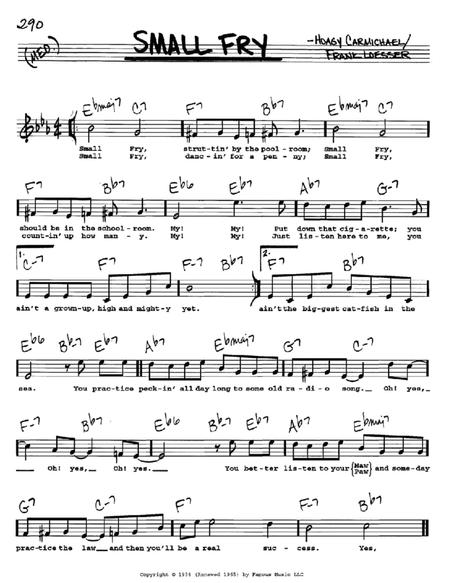 290
SMALL FRY
-HOAGY CARMICHAEL/
FRANK LOESSER
(MED.)
Ebmaj7 C-7 F-7 Bb7 Ebmaj7 C-7
Small Fry, strut-tin' by the pool-room; Small Fry,
Small Fry, danc-in' for a pen-ny; Small Fry,
F-7 Bb7 Eb6 Eb7 Ab7 G-7
should be in the school-room. My! My! Put down that cig-a-rette; you
count-in' up how man-y. My! My! Just lis-ten here to me, you
1. C-7 F-7 Bb7 2. F-7 Bb7
ain't a grown-up, high and might-y yet. ain't the big-gest cat-fish in the
Eb6 Bb-7 Eb7 Ab7 Ebmaj7 G7 C-7
sea. You prac-tice peck-in' all day long to some old ra-di-o song. Oh! yes,
F-7 Bb7 Eb6 Eb7 Ab7 Ebmaj7
Oh! yes, Oh! yes. You bet-ter lis-ten to your {Maw Paw} and some-day
G7 C-7 F7 F-7 Bb7
prac-tice the law and then you'll be a real suc-cess. Yes,
Copyright © 1938 (Renewed 1965) by Famous Music LLC